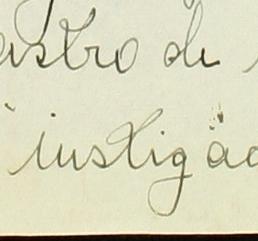 astro de
instigac